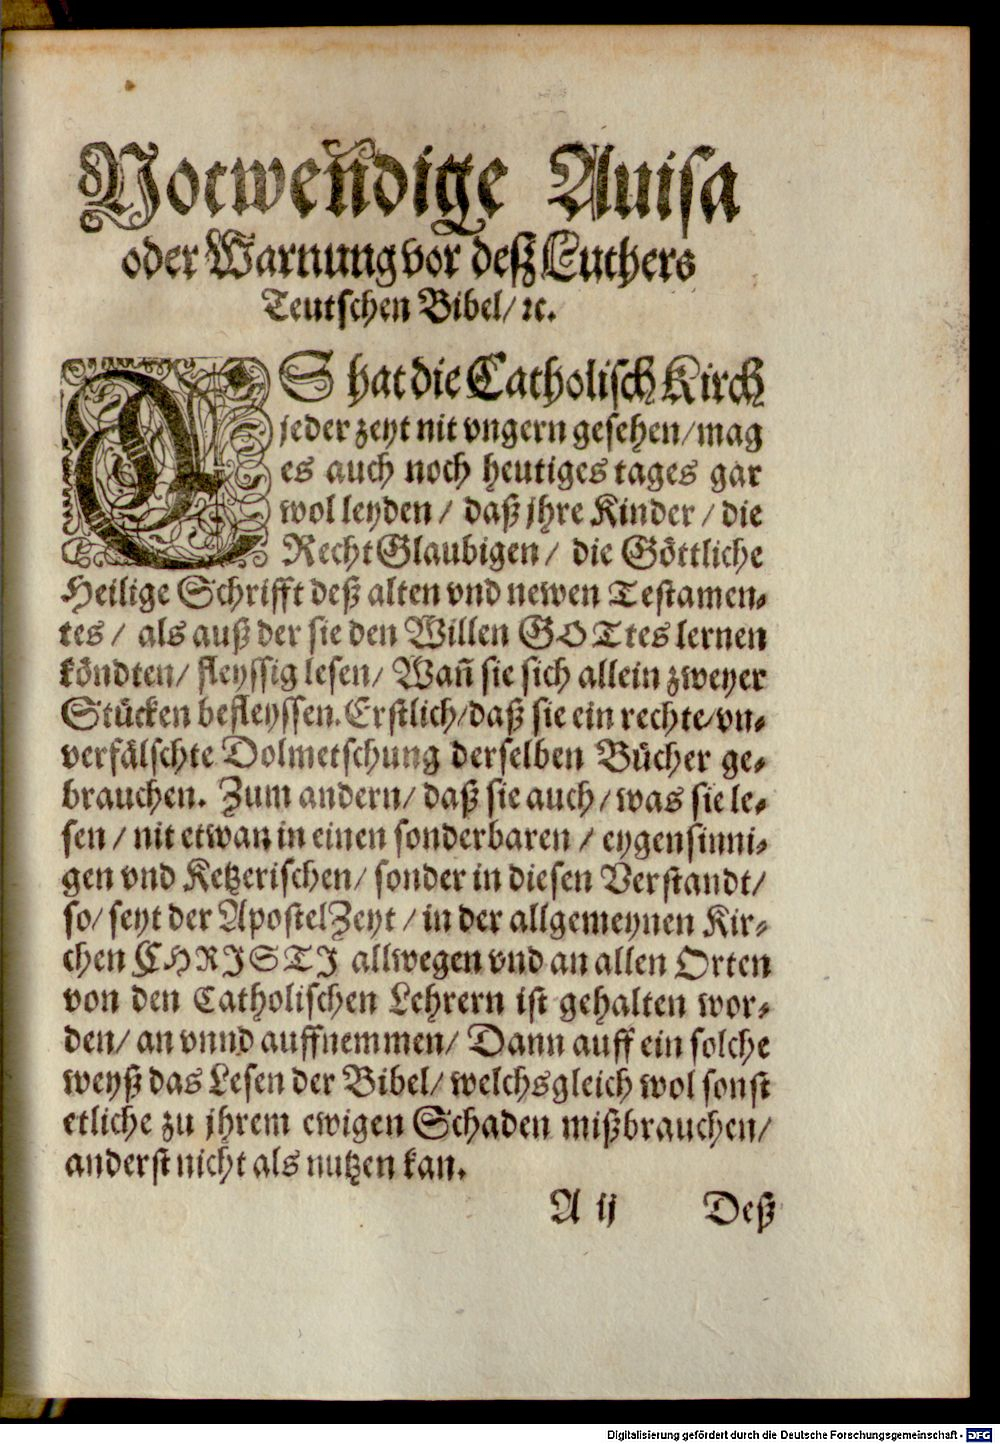 Notwendige Auisa
oder Warnung vor deß Luthers
Teutschen Bibel/ ꝛc.
ES hat die Catholisch Kirch
jeder zeyt nit vngern gesehen/ mag
es auch noch heutiges tages gar
wol leyden/ daß jhre Kinder/ die
RechtGlaubigen/ die Göttliche
Heilige Schrifft deß alten vnd newen Testamen-
tes/ als auß der sie den Willen GOTtes lernen
köndten/ fleyssig lesen/ Wañ sie sich allein zweyer
Stücken befleyssen. Erstlich/ daß sie ein rechte/ vn-
verfälschte Dolmetschung derselben Bücher ge-
brauchen. Zum andern/ daß sie auch/ was sie le-
sen/ nit etwan in einen sonderbaren/ eygensinni-
gen vnd Ketzerischen/ sonder in diesen Verstandt/
so/ seyt der Apostel Zeyt/ in der allgemeynen Kir-
chen CHRISTI allwegen vnd an allen Orten
von den Catholischen Lehrern ist gehalten wor-
den/ an vnnd auffnemmen/ Dann auff ein solche
weyß das Lesen der Bibel/ welchs gleich wol sonst
etliche zu jhrem ewigen Schaden mißbrauchen/
anderst nicht als nutzen kan.
A ij Deß
Digitalisierung gefördert durch die Deutsche Forschungsgemeinschaft - DFG